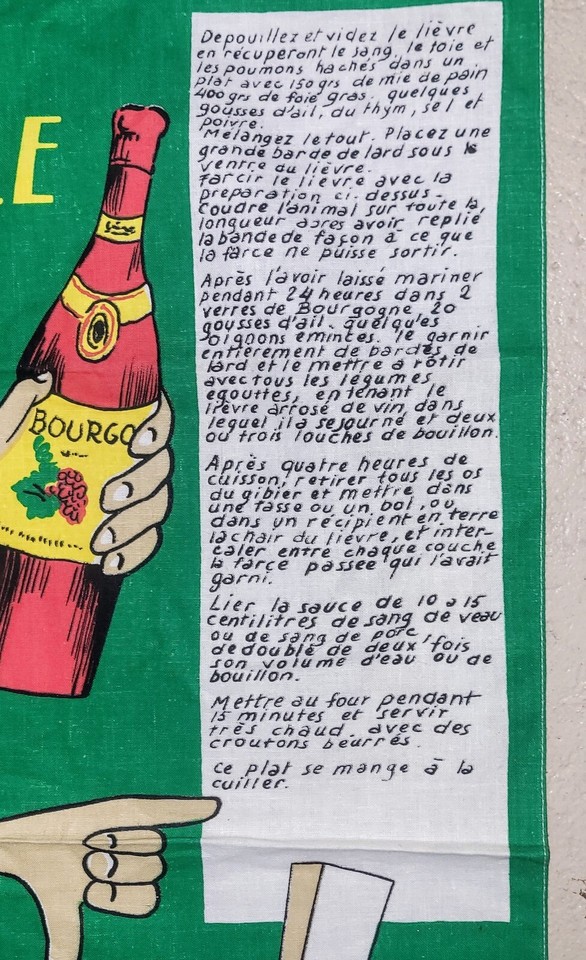 LE
BOURGO
Depouillez et videz le lièvre
en récuperant le sang, le foie et
les poumons hachés dans un
plat avec 150 grs de mie de pain
400 grs de foie gras. quelques
gousses d'ail, du thym, sel et
poivre.
Mélangez le tout. Placez une
grande barde de lard sous le
ventre du lièvre.
Farcir le lièvre avec la
preparation ci-dessus-
Coudre l'animal sur toute la,
longueur apres avoir replié
la bande de façon à ce que
la farce ne puisse sortir.
Après l'avoir laissé mariner
pendant 24 heures dans 2
verres de Bourgogne, 20
gousses d'ail. quelques
oignons émincés. le garnir
entièrement de bardes de
lard et le mettre à rôtir
avec tous les légumes
égouttés, en tenant le
lièvre arrosé de vin dans
lequel il a séjourné et deux
ou trois louches de bouillon.
Après quatre heures de
cuisson, retirer tous les os
du gibier et mettre dans
une tasse ou un bol, ou
dans un récipient en terre
la chair du lièvre, et inter-
caler entre chaque couche
la farce passée qui l'avait
garni.
Lier la sauce de 10 a 15
centilitres de sang de veau
ou de sang de porc,
dedoublé de deux fois
son volume d'eau ou de
bouillon.
Mettre au four pendant
15 minutes et servir
très chaud avec des
croutons beurrés.
Ce plat se mange à la
cuiller.